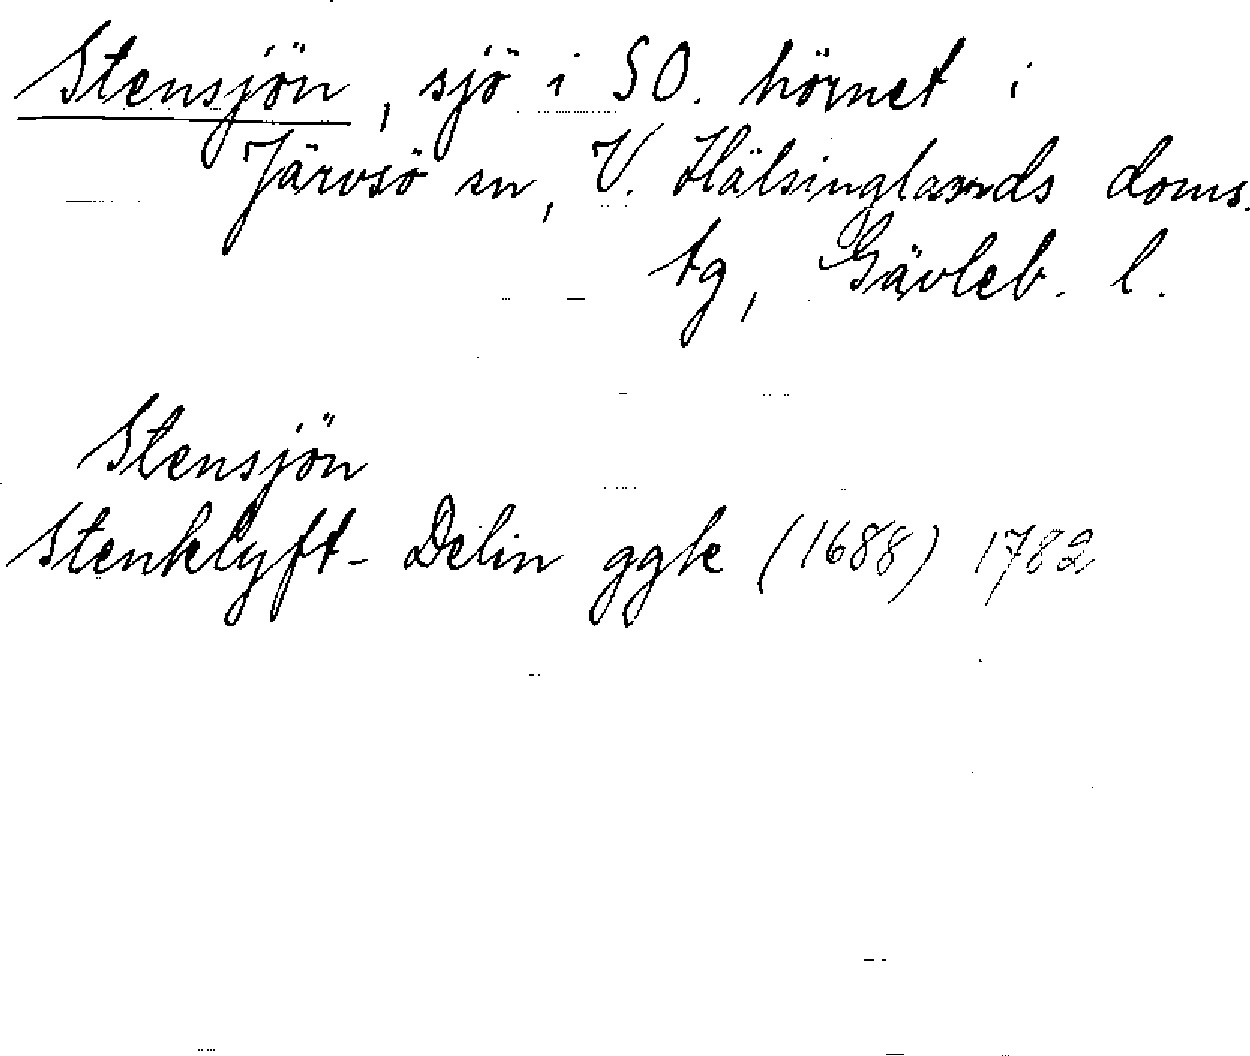 Stensjön, sjö i SO. hörnet i
Järvsö sn, V. Hälsinglands doms.
tg, Gävleb. l.
Stensjön
Stenklyft- Delin ggk (1688) 1782